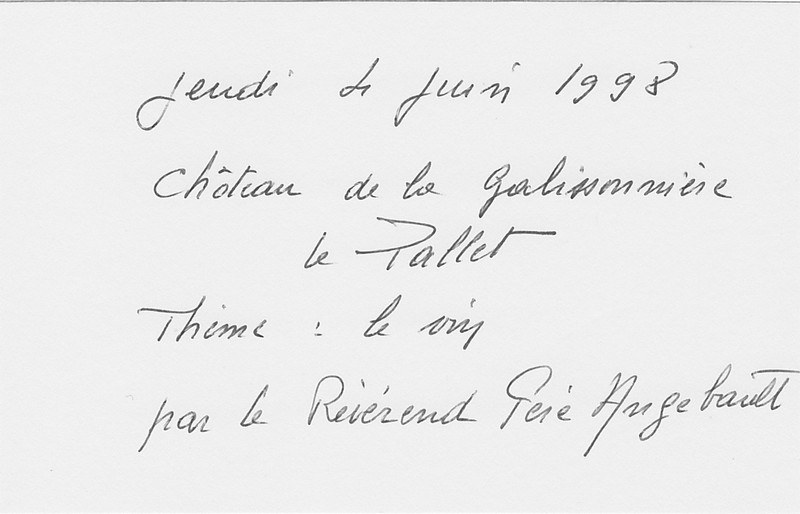 Jeudi 4 juin 1998
Château de la Galissonnière
le Pallet
Thème : le vin
par le Révérend Père Angebault